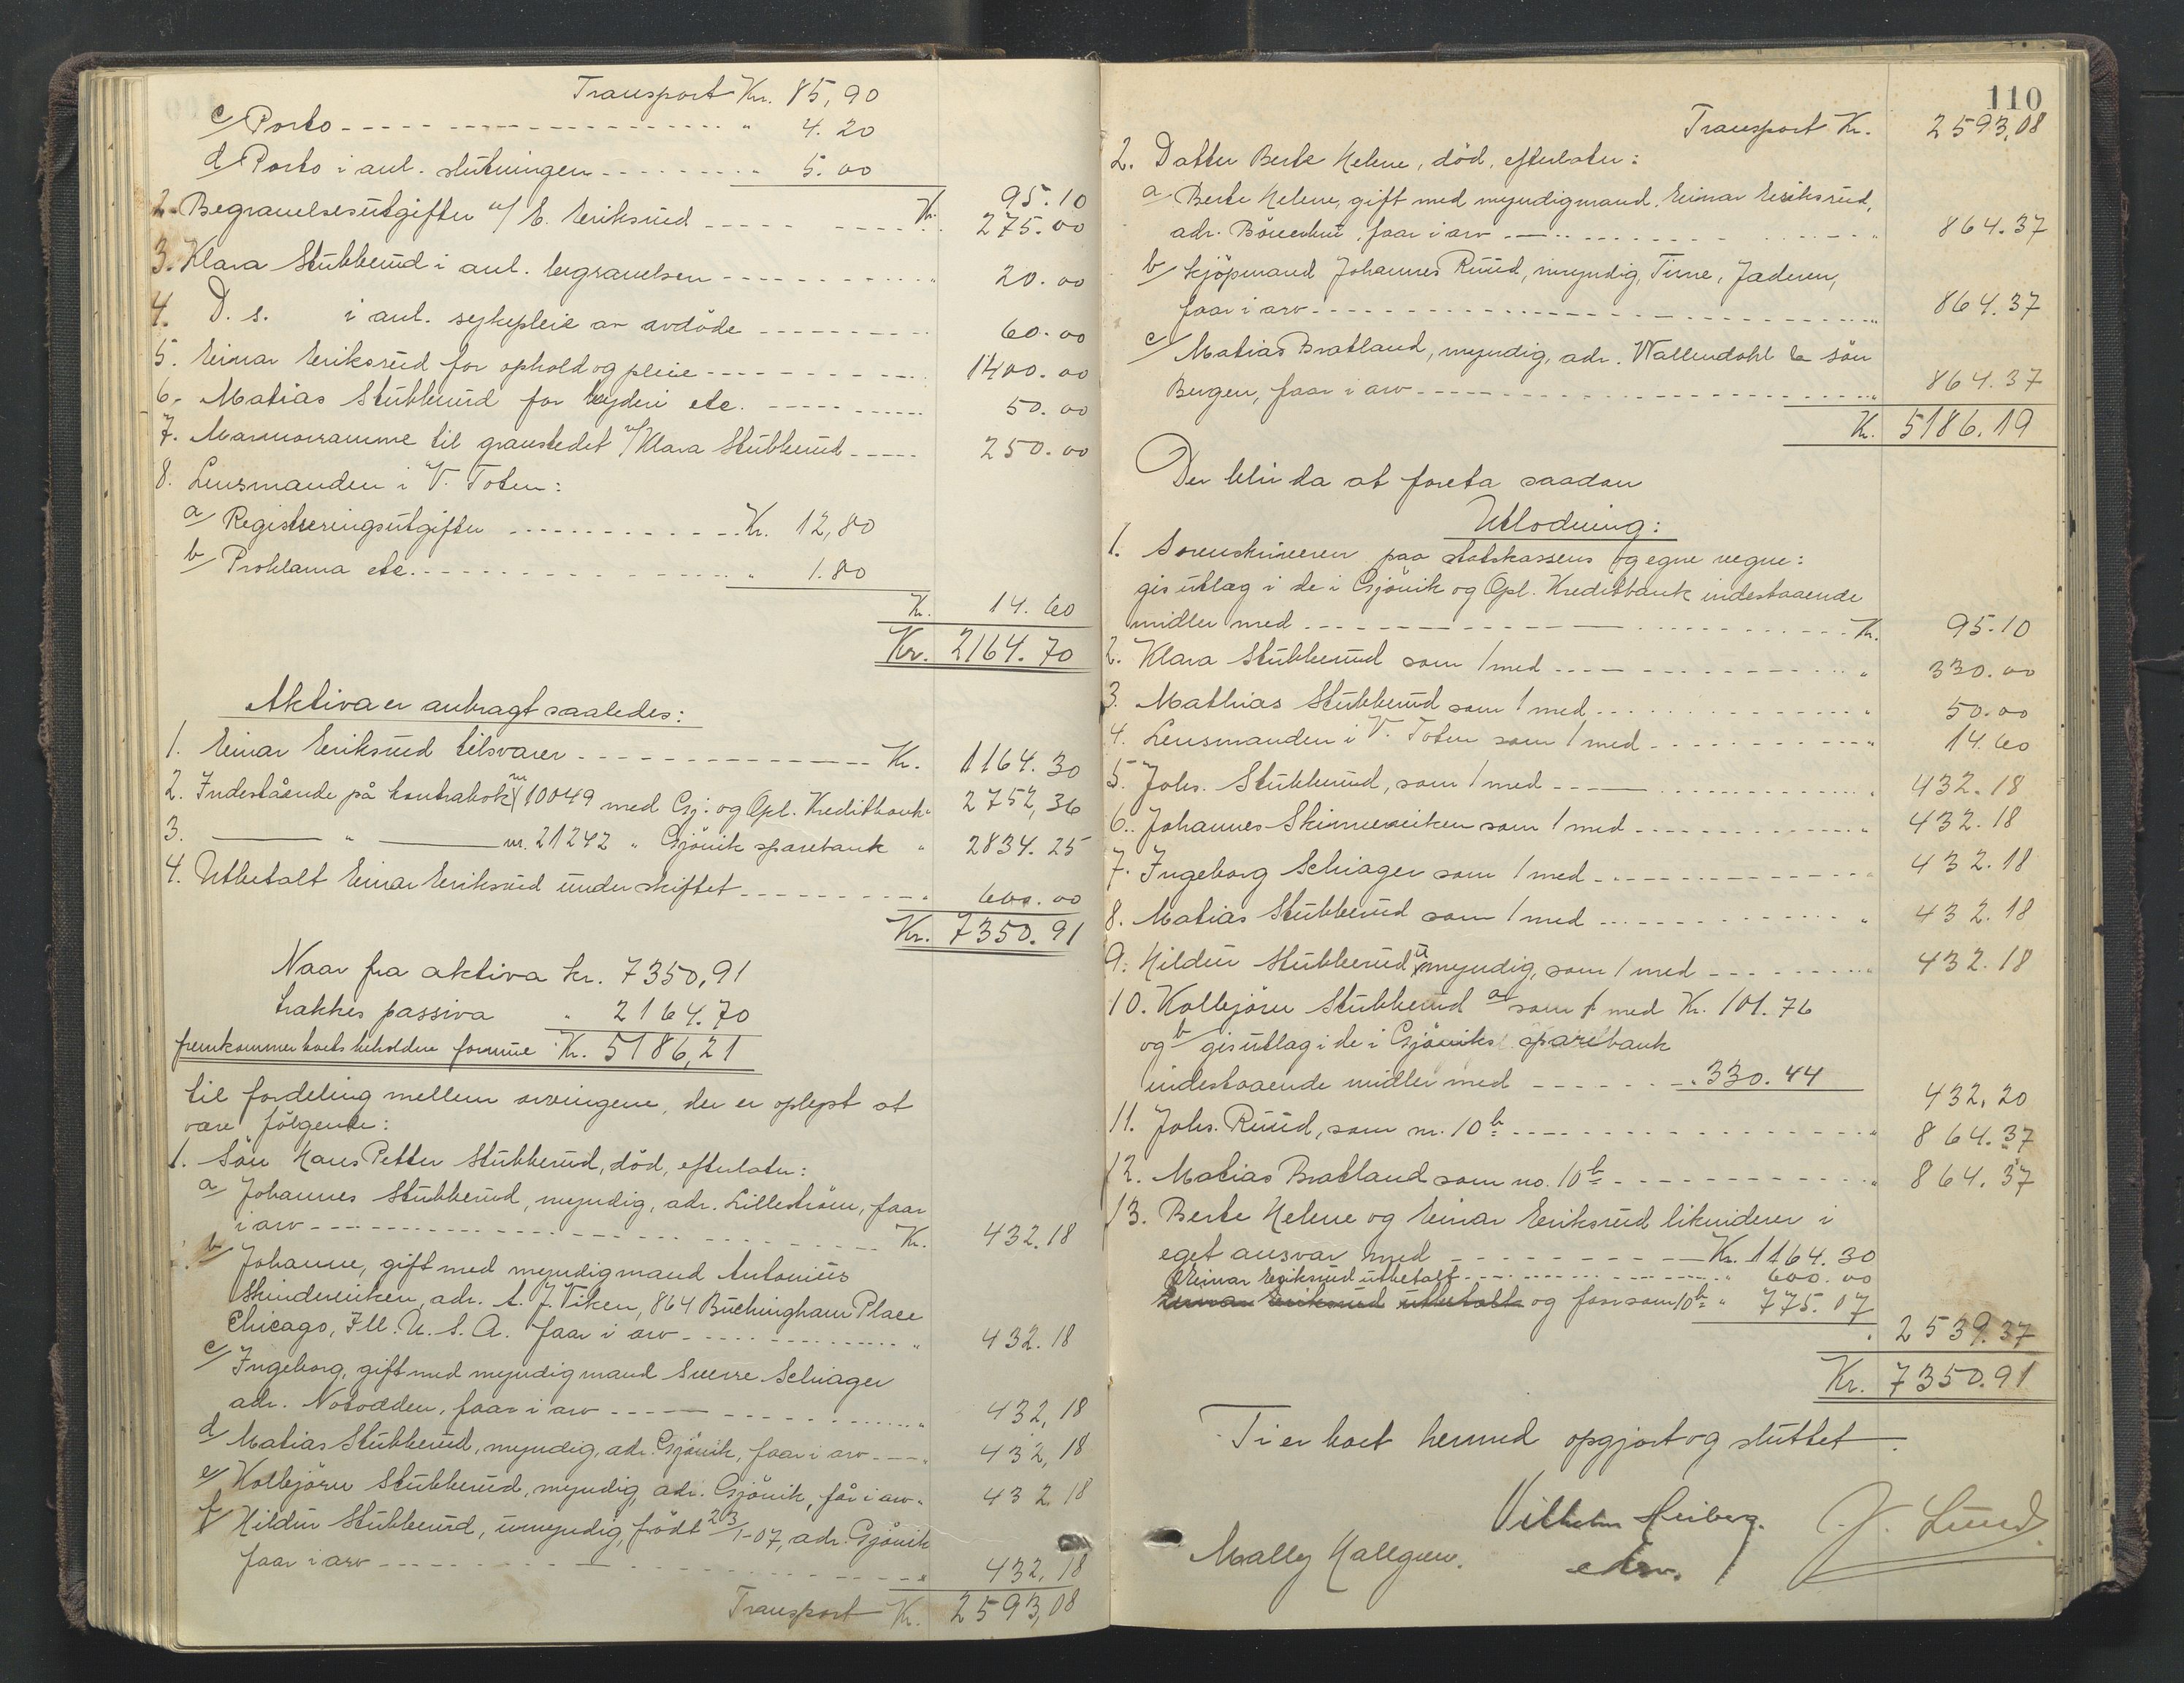 Transport Kr. 85,90
c/ Porto " 4.20
d/ Porto i anl. slutningen " 5.00
Kr. 95.10
2. Begravelsesutgifter v/ E. Eriksrud " 275.00
3. Klara Stubberud i anl. begravelsen " 20.00
4. D. s. i anl. sykepleie av avdöde 60.00
5. Einar Eriksrud for ophold og pleie 1400.00
6. Matias Stubberud for bryderi etc. 50.00
7. Marmorramme til gravstedet v/ Klara Stubberud 250.00
8. Lensmanden i V. Toten:
a/ Registreringsutgifter Kr. 12,80
b/ Proklama etc. " 1.80
Kr. 14.60
Kr. 2164.70
Aktiva er anbragt saaledes:
1. Einar Eriksrud tilsvarer Kr. 1164.30
2. Indestående på kontrabok nr 10049 med Gj. og Opl. Kreditbank " 2752,36
3. " nr. 21242 " Gjövik sparebank " 2834.25
4. Utbetalt Einar Eriksrud under skiftet " 600.00
Kr. 7350.91
Naar fra aktiva kr. 7350,91
trækkes passiva " 2164.70
fremkommer boets beholdne formue Kr. 5186,21
til fordeling mellem arvingene, der er oplyst at
være følgende:
1. Sön Hans Petter Stubberud, död, efterlater:
a/ Johannes Stubberud, myndig, adr. Lilleström, faar
i arv Kr. 432.18
b/ Johanne, gift med myndig mand Antonius
Skinderviken, adr. A. J. Viken, 864 Buchingham Place
Chicago, Ill. U. S. A. faar i arv " 432.18
c/ Ingeborg, gift med myndig mand Sverre Schiager
adr. Notodden, faar i arv " 432,18
d/ Matias Stubberud, myndig, adr. Gjövik, faar i arv " 432,18
e/ Kolbjörn Stubberud, myndig, adr. Gjövik, får i arv " 432.18
f/ Hildur Stubberud, umyndig, födt 23/1-07, adr. Gjövik
faar i arv " 432,18
Transport Kr. 2593,08
110
Transport Kr. 2593,08
2. Datter Berte Helene, död, efterlater:
a/ Berte Helene, gift med myndig mand Einar Eriksrud,
adr. faar i arv " 864.37
b/ kjöpmand Johannes Ruud, myndig, Time, Jaderen,
faar i arv " 864.37
c/ Matias Bratland, myndig, adr. Wallendahl & sön
Bergen, faar i arv " 864.37
Kr. 5186.19
Der blir da at foreta saadan
Utlodning:
1. Sorenskriveren paa statskassens og egne vegne:
gis utlæg i de i Gjövik og Opl. Kreditbank indestaaende
midler med Kr. 95.10
2. Klara Stubberud som 1 med " 330.00
3. Mathias Stubberud som 1 med " 50.00
4. Lensmanden i V. Toten som 1 med " 14.60
5. Johs. Stubberud, som 1 med " 432.18
6. Johannes Skinnerviken som 1 med " 432.18
7. Ingeborg Schiager som 1 med " 432.18
8. Matias Stubberud som 1 med " 432.18
9. Hildur Stubberud umyndig, som 1 med " 432.18
10. Kolbjörn Stubberud a/ som 1 med Kr. 101.76
og b/ gis utlæg i de i Gjöviks sparebank
indestaaende midler med " 330.44
432.20
11. Johs. Ruud, som nr. 10 b " 864.37
12. Matias Bratland som no. 10 b " 864.37
13. Berte Helene og Einar Eriksrud likviderer i
eget ansvar med Kr. 1164.30
Einar Eriksrud utbetalt " 600.00
Einar Eriksrud utbetalt og faar som 10 b " 775.07
" 2539.37
Kr. 7350.91
Ti er boet hermed opgjort og sluttet.
Vilhelm Heiberg.
J. Lund
Mally Hallgren.